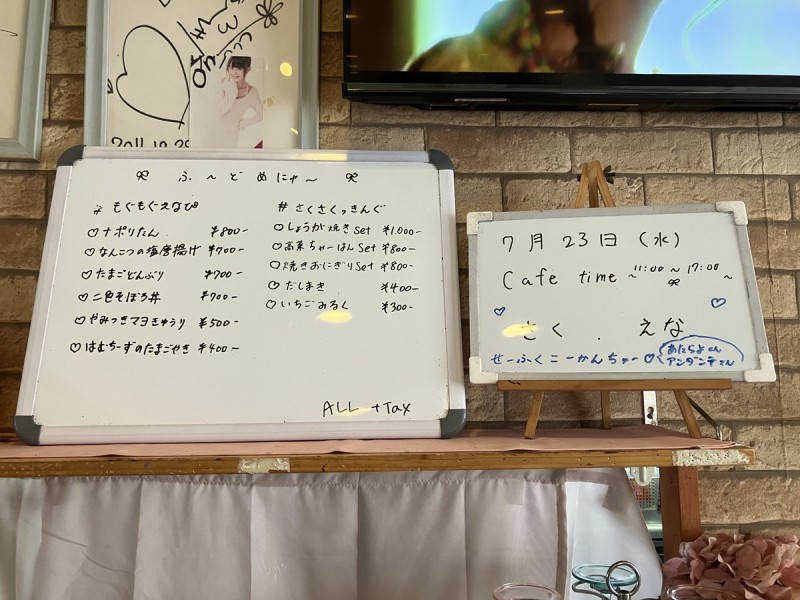 2011.10.29
ふ〜どめにゅ〜
#もぐもぐえなぴ
♡ナポリたん ¥800-
♡なんこつの塩唐揚げ ¥700-
♡たまごどんぶり ¥700-
♡二色そぼろ丼 ¥700-
♡やみつきマヨきゅうり ¥500-
♡はむちーずのたまごやき ¥400-
#さくさくっきんぐ
♡しょうが焼きset ¥1.000-
♡高菜ちゃーはんSet ¥800-
♡焼きおにぎりSet ¥800-
♡だしまき ¥400-
♡いちごみるく ¥300-
ALL +Tax
7月23日(水)
Cafe time 〜11:00〜17:00〜
さく . えな
せーふくこーかんちゅー♡
あにらよこん
アンダンテさん